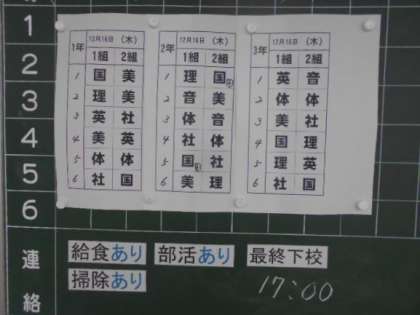 1年 12月16日 (木) 2年 12月16日 (木) 3年 12月16日 (木)
1組 2組 1組 2組 1組 2組
1 1 国 美 1 理 国 1 英 音
2 2 理 美 2 音 美 2 体 体
3 3 英 社 3 体 音 3 美 社
4 4 美 英 4 社 体 4 国 理
5 5 体 体 5 国 社 5 理 英
6 6 社 国 6 美 理 6 社 国
連絡
給食あり 部活あり 最終下校
掃除あり 17:00